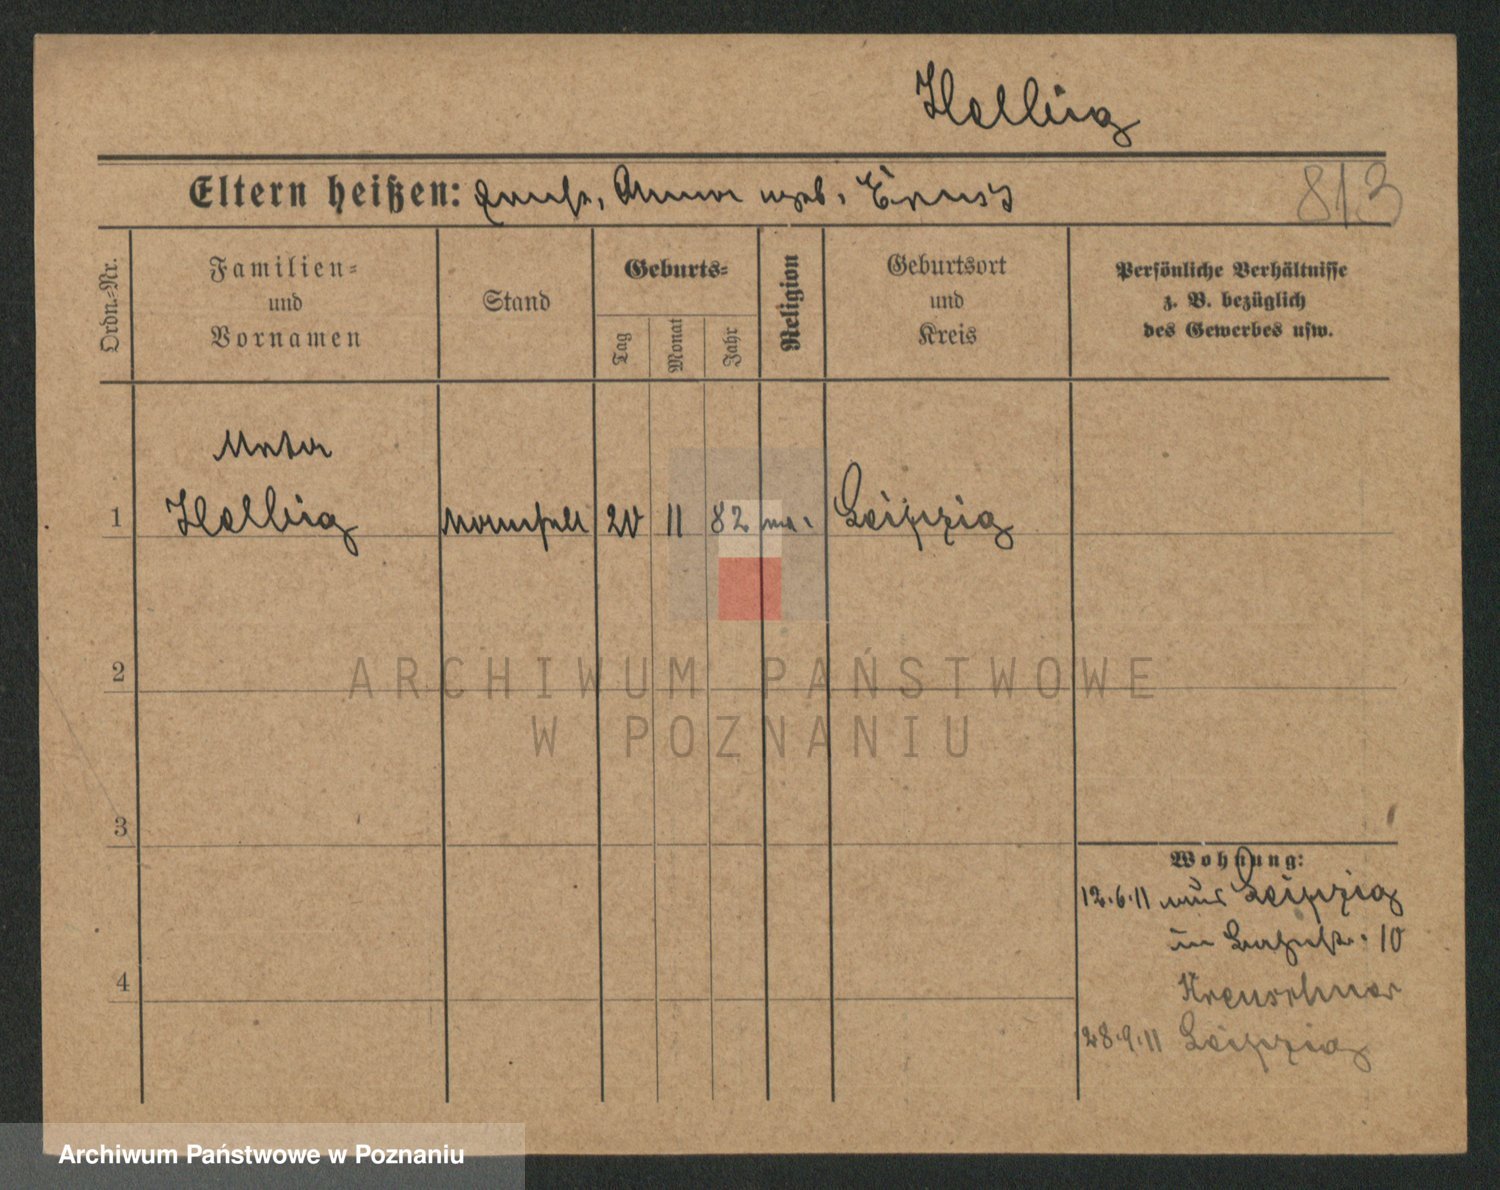 Helbig
Eltern heißen: Anna geb. Ernst
813
Ordn.-Nr.
Familien-
und
Vornamen
Stand
Geburts-
Tag
Monat
Jahr
Religion
Geburtsort
und
Kreis
Persönliche Verhältnisse
z. B. bezüglich
des Gewerbes usw.
1
Helbig
20
11
82
Leipzig
2
ARCHIWUM PAŃSTWOWE
W POZNANIU
3
Wohnung:
12.6.11 aus Leipzig
10
4
28.9.11 Leipzig
Archiwum Państwowe w Poznaniu